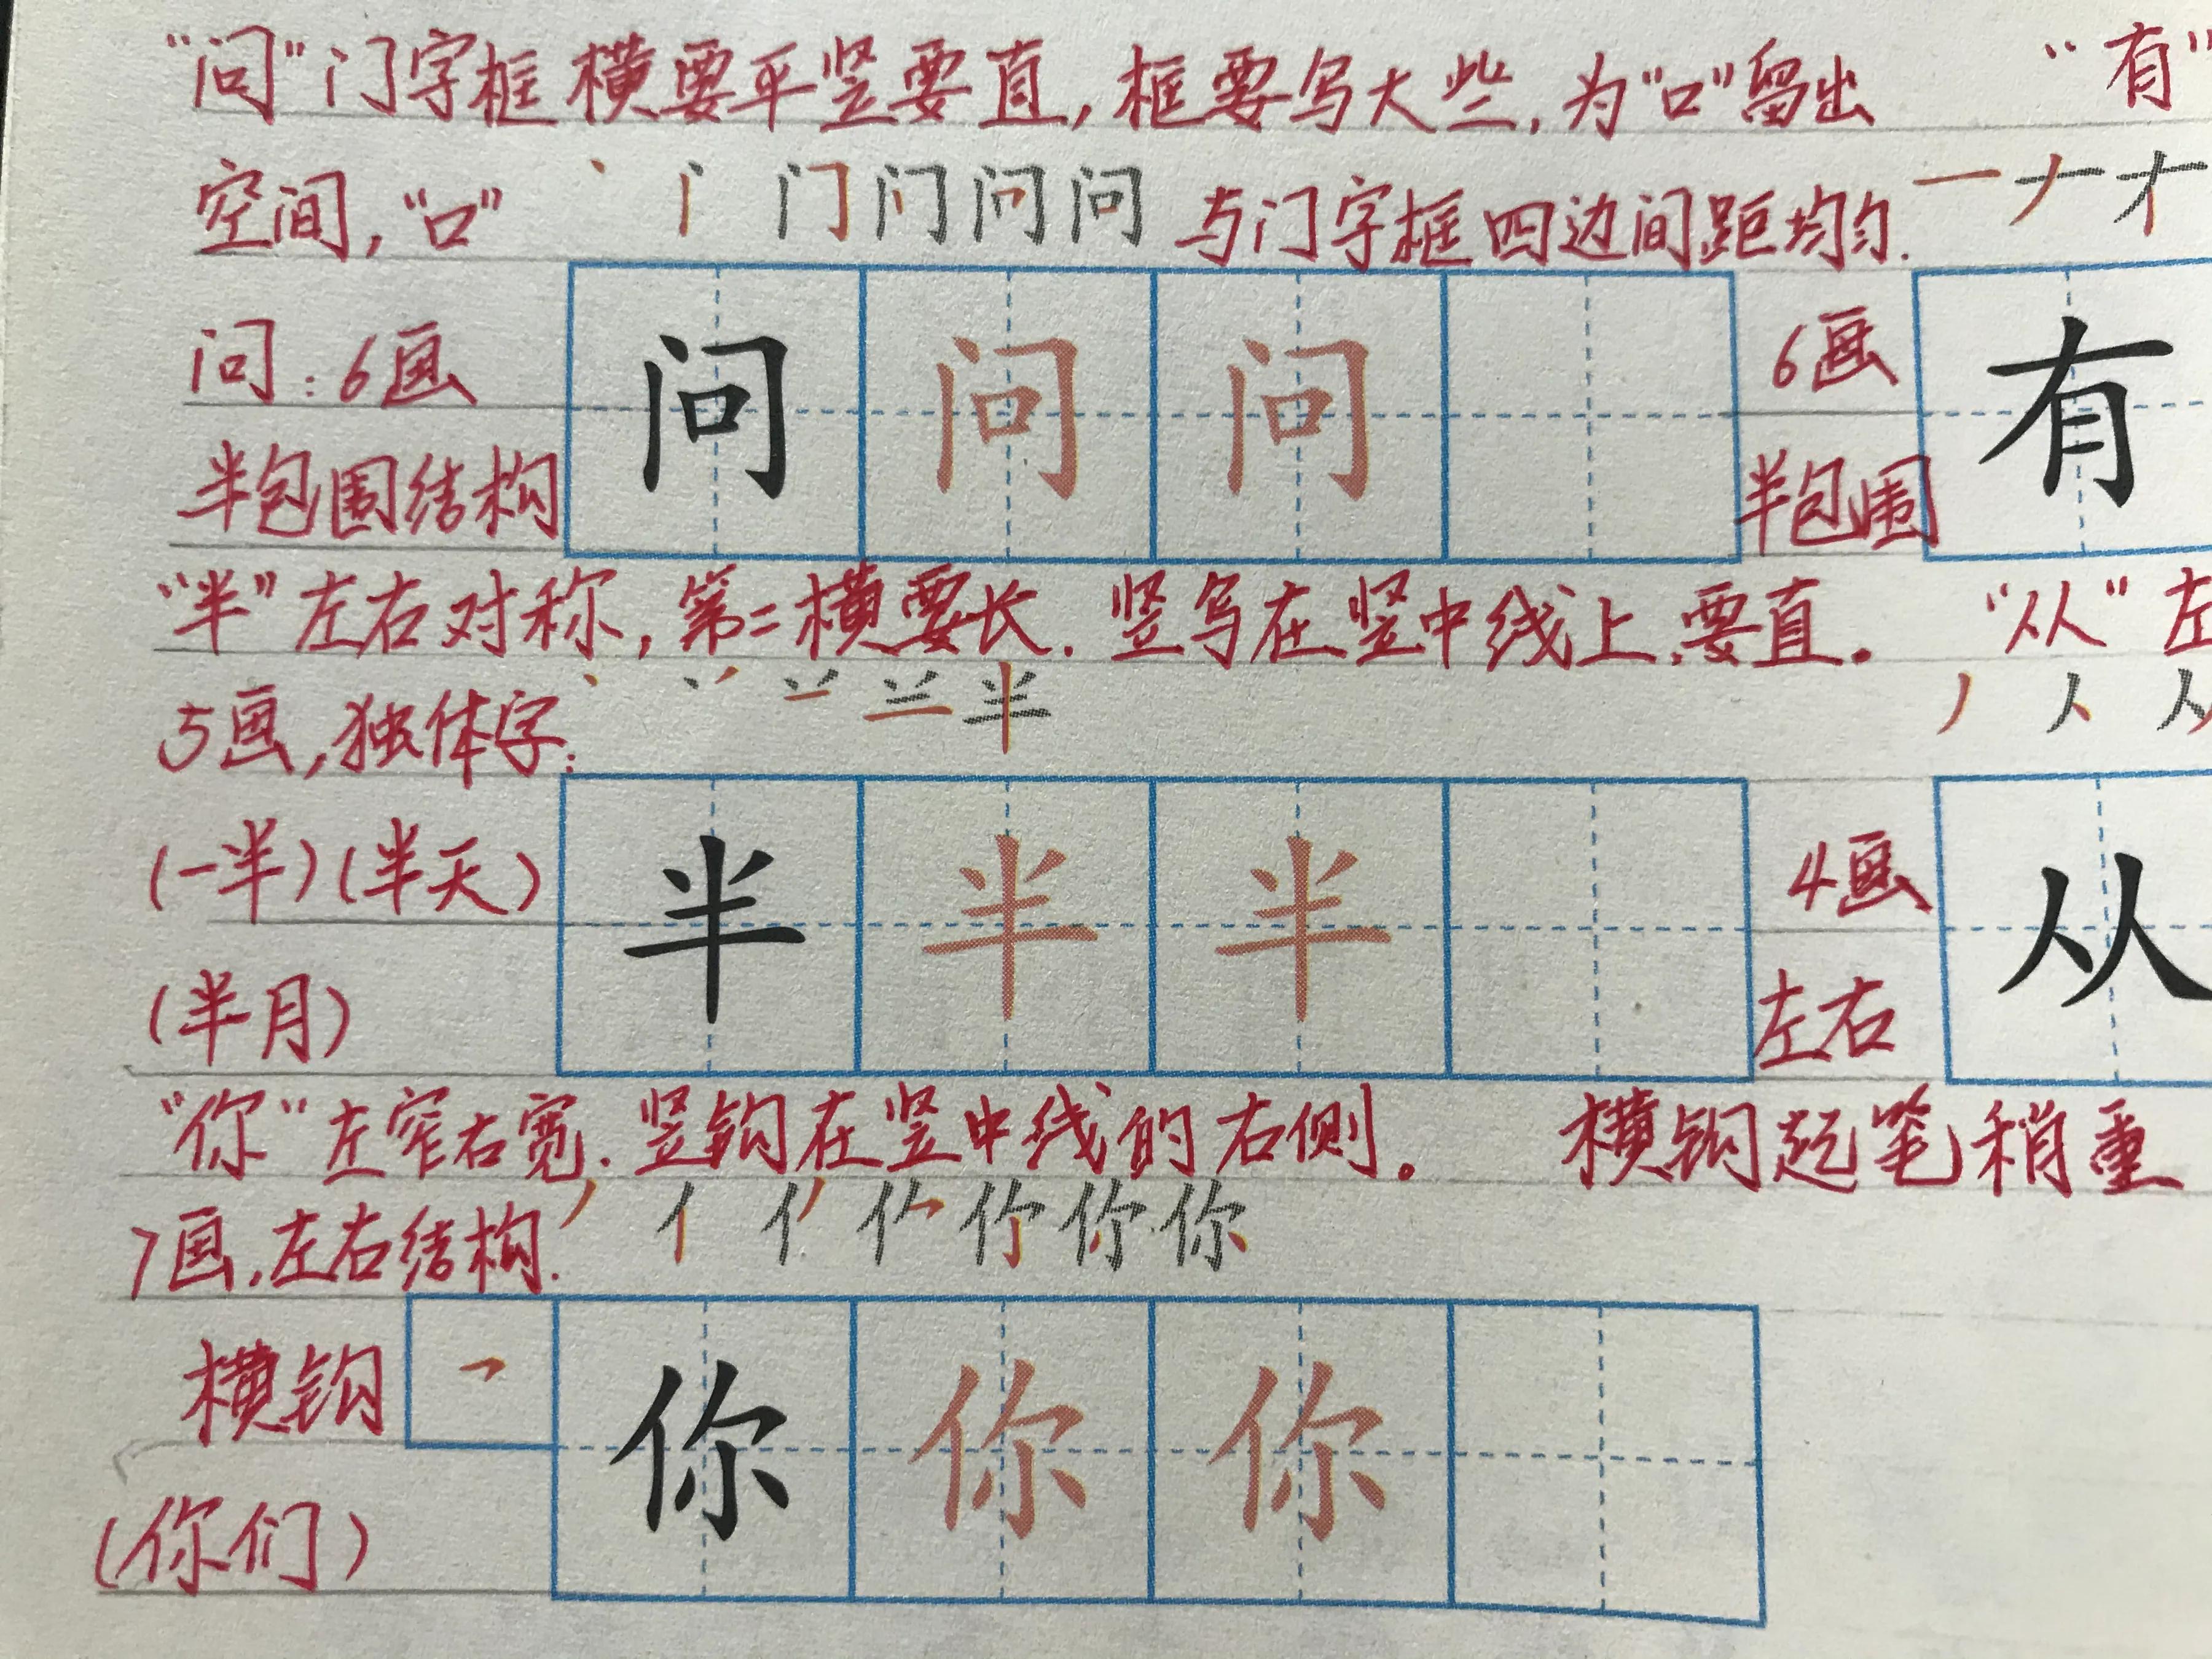 “问”门字框 横要平竖要直，框要写大些，为“口”留出 “有”
空间，“口” 丶 门 问 问 与门字框四边间距均匀. 一 ナ
问：6画 问 问 问 6画 有
半包围结构 半包围
“半”左右对称，第二横要长. 竖写在竖中线上，要直。 “从”左
5画，独体字： 丶 丷 半 丿 人
(一半)(半天) 半 半 半 4画 从
(半月) 左右
“你”左窄右宽. 竖钩在竖中线的右侧。 横钩起笔稍重
7画，左右结构. 丿 亻 你
横钩 乛 你 你 你
(你们)